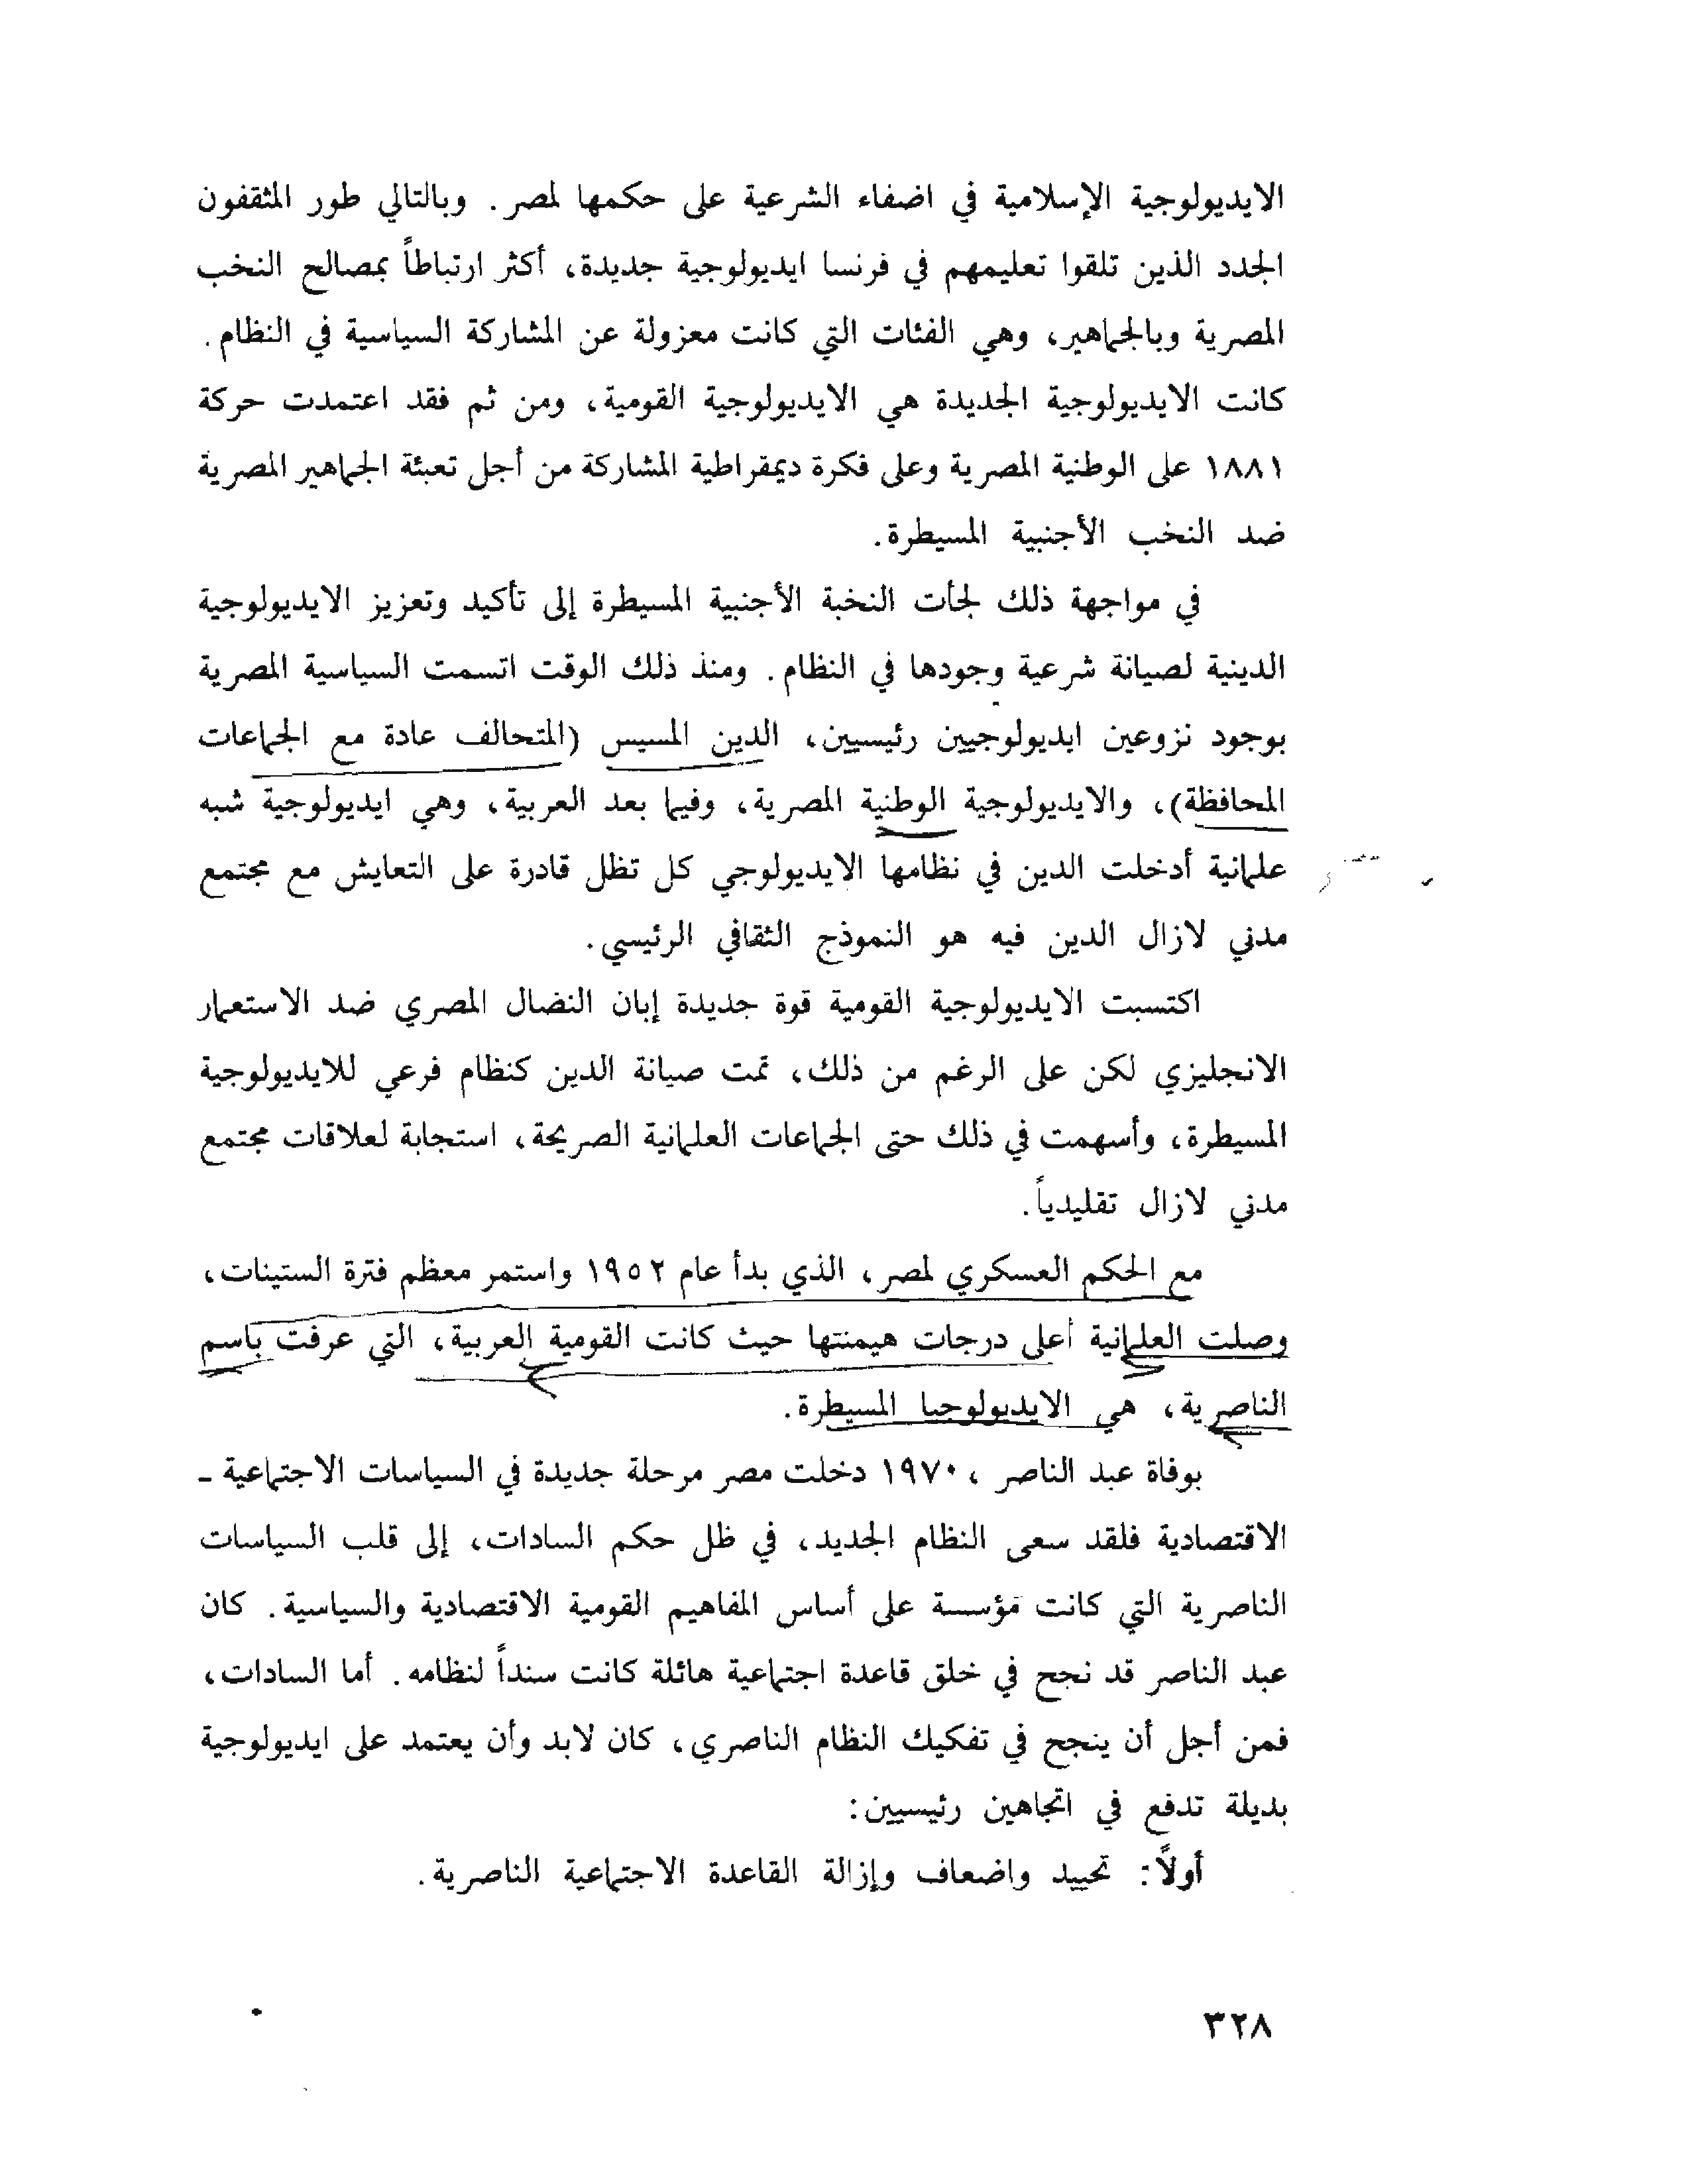 الايديولوجية الإسلامية في اضفاء الشرعية على حكمها لمصر. وبالتالي طور المثقفون
الجدد الذين تلقوا تعليمهم في فرنسا ايديولوجية جديدة، أكثر ارتباطاً بمصالح النخب
المصرية وبالجماهير، وهي الفئات التي كانت معزولة عن المشاركة السياسية في النظام.
كانت الايديولوجية الجديدة هي الايديولوجية القومية، ومن ثم فقد اعتمدت حركة
١٨٨١ على الوطنية المصرية وعلى فكرة ديمقراطية المشاركة من أجل تعبئة الجماهير المصرية
ضد النخب الأجنبية المسيطرة.
في مواجهة ذلك لجأت النخبة الأجنبية المسيطرة إلى تأكيد وتعزيز الايديولوجية
الدينية لصيانة شرعية وجودها في النظام. ومنذ ذلك الوقت اتسمت السياسية المصرية
بوجود نزوعين ايديولوجيين رئيسيين، الدين المسيس (المتحالف عادة مع الجماعات
المحافظة)، والايديولوجية الوطنية المصرية، وفيما بعد العربية، وهي ايديولوجية شبه
علمانية أدخلت الدين في نظامها الايديولوجي كل تظل قادرة على التعايش مع مجتمع
مدني لازال الدين فيه هو النموذج الثقافي الرئيسي.
اكتسبت الايديولوجية القومية قوة جديدة إبان النضال المصري ضد الاستعمار
الانجليزي لكن على الرغم من ذلك، تمت صيانة الدين كنظام فرعي للايديولوجية
المسيطرة، وأسهمت في ذلك حتى الجماعات العلمانية الصريحة، استجابة لعلاقات مجتمع
مدني لازال تقليدياً.
مع الحكم العسكري لمصر، الذي بدأ عام ١٩٥٢ واستمر معظم فترة الستينات،
وصلت العلمانية أعلى درجات هيمنتها حيث كانت القومية العربية، التي عرفت باسم
الناصرية، هي الايديولوجيا المسيطرة.
بوفاة عبد الناصر ، ١٩٧٠ دخلت مصر مرحلة جديدة في السياسات الاجتماعية ـ
الاقتصادية فلقد سعى النظام الجديد، في ظل حكم السادات، إلى قلب السياسات
الناصرية التي كانت مؤسسة على أساس المفاهيم القومية الاقتصادية والسياسية. كان
عبد الناصر قد نجح في خلق قاعدة اجتماعية هائلة كانت سنداً لنظامه. أما السادات،
فمن أجل أن ينجح في تفكيك النظام الناصري، كان لابد وأن يعتمد على ايديولوجية
بديلة تدفع في اتجاهين رئيسيين:
أولاً: تحييد واضعاف وإزالة القاعدة الاجتماعية الناصرية.
٣٢٨